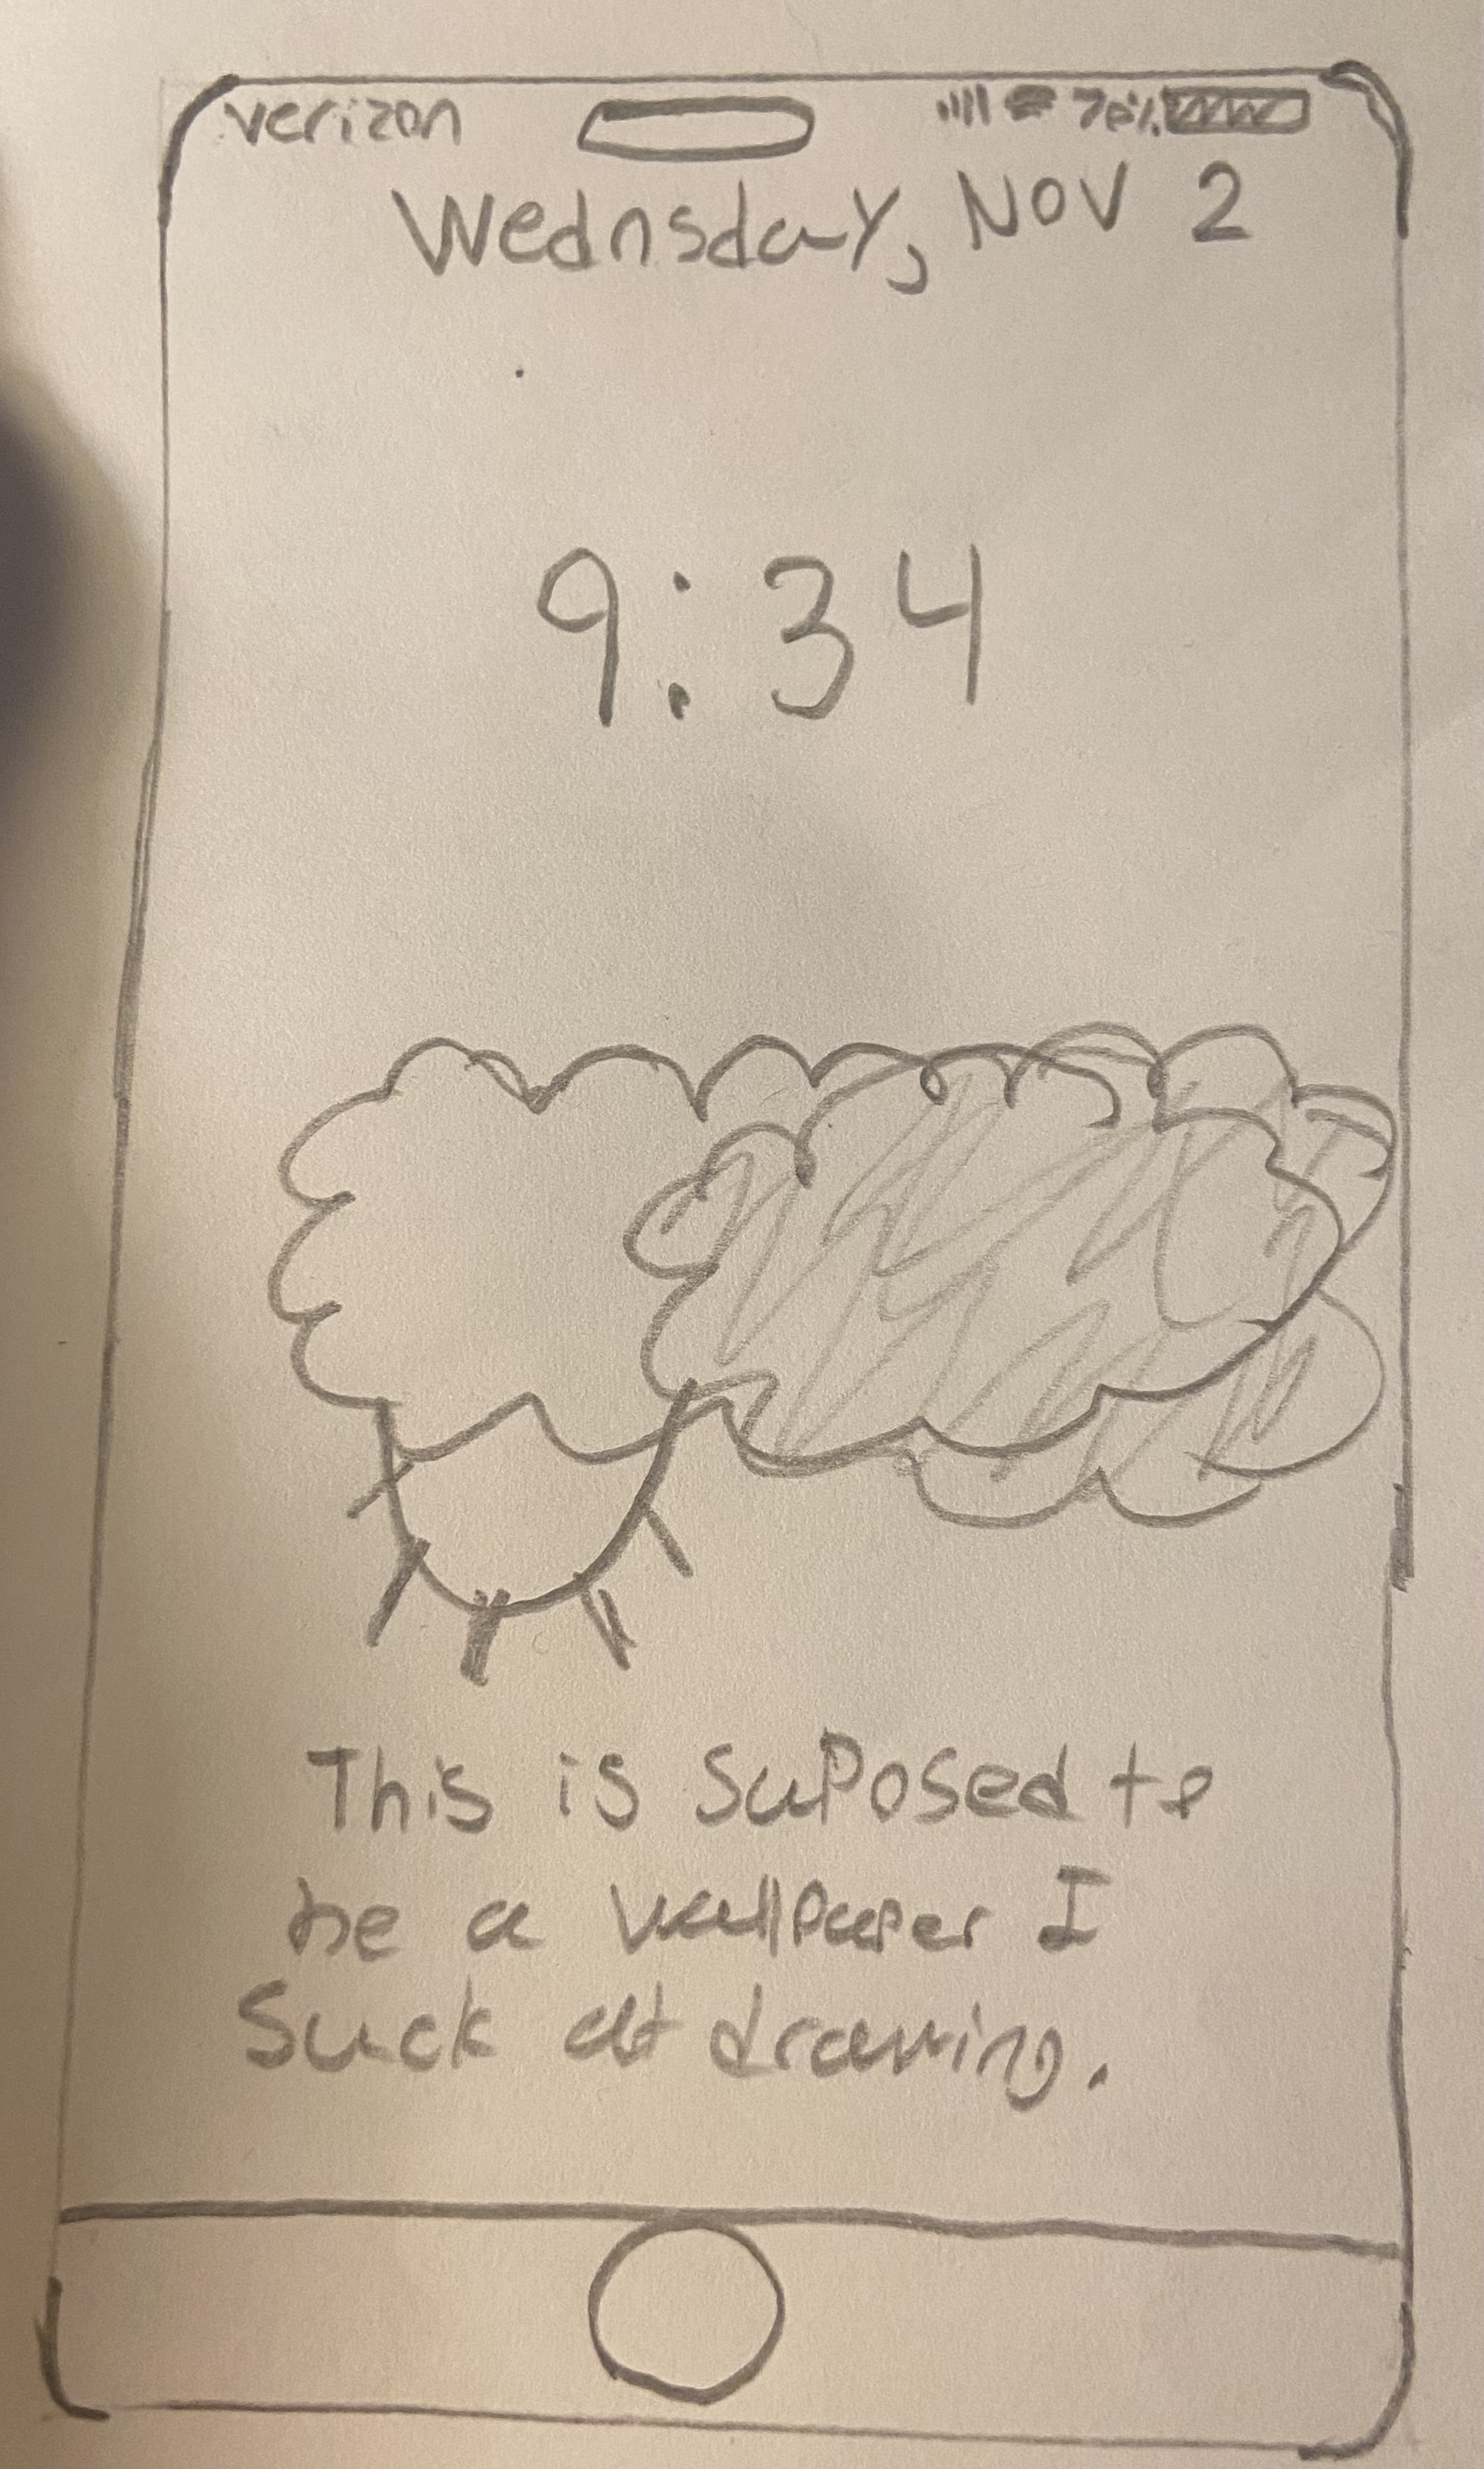 verizon 76%
Wednsday, NOV 2
9:34
This is suPosed to
be a wallpaper I
Suck at drawing.